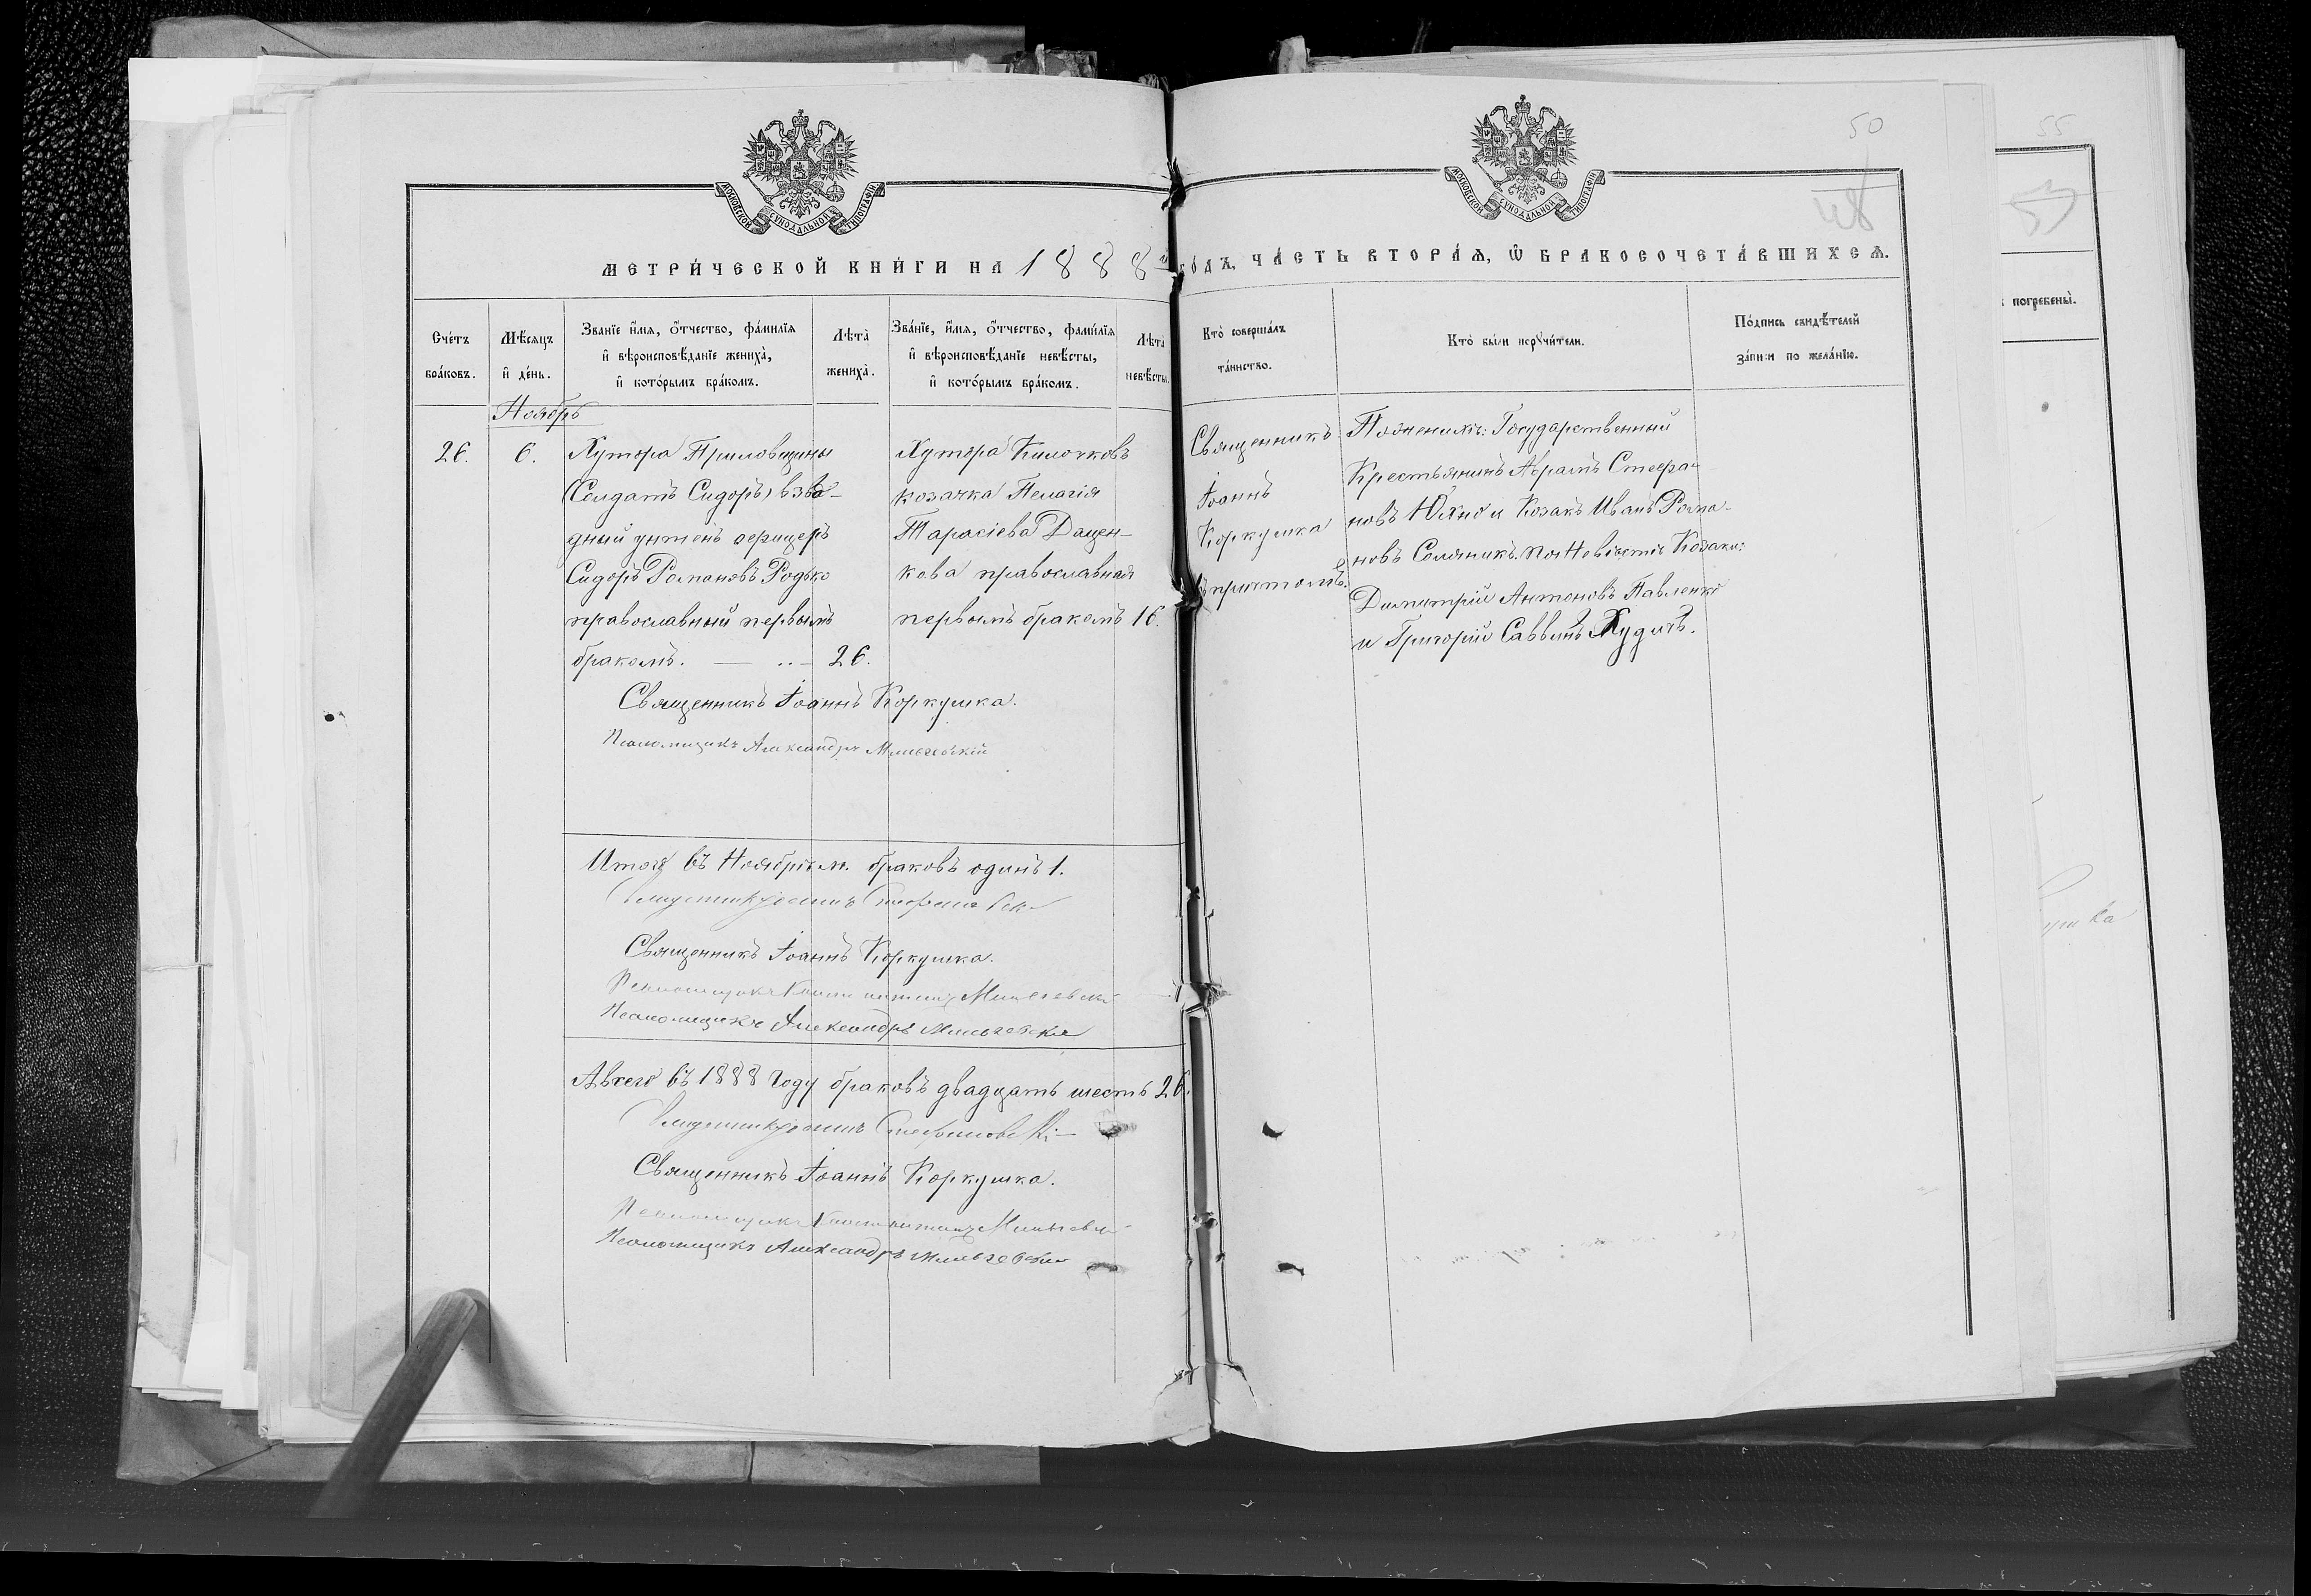 50
48
55
МОСКОВСКОЙ СѴНОДАЛЬНОЙ ТИПОГРАФІИ
МОСКОВСКОЙ СѴНОДАЛЬНОЙ ТИПОГРАФІИ
МЕТРИ́ЧЕСКОЙ КНИ́ГИ НА 1888й ГО́ДЪ, ЧА́СТЬ ВТОРА́Ѧ, Ѡ БРАКОСОЧЕТА́ВШИХСѦ.
Сче́тъ бра́ковъ.
Мѣ́сѧцъ и҆ де́нь.
Зва́нїе и҆́мѧ, ѻ҆́тчество, фамѝлїѧ и҆ вѣроисповѣ́данїе жениха̀, и҆ кото́рымъ бра́комъ.
Лѣта̀ жениха̀.
Зва́нїе, и҆́мѧ, ѻ҆́тчество, фамѝлїѧ и҆ вѣроисповѣ́данїе невѣ́сты, и҆ кото́рымъ бра́комъ.
Лѣта̀ невѣ́сты.
Кто̀ соверша́лъ та́инство.
Кто̀ бы́ли порꙋчи́тели.
По́дпись свидѣ́телей за́писи по жела́нїю.
погребены̀.
Ноябрь
26.
6.
Хутора Приловщины
(Солдатъ Сидоръ) взво-
дный унтенъ офицеръ
Сидоръ Романовъ Родько
православный первымъ
бракомъ.
26.
Хутора
козачка Пелагія
Тарасіева Дацен-
кова православная
первымъ бракомъ
16.
Священникъ
Іоаннъ
Коркушка
съ причтомъ.
По женихѣ: Государственный
Крестьянинъ Аврамъ Стефа-
новъ Юхно и Козакъ Иванъ Рома-
новъ Соляникъ. По Невѣстѣ Козаки:
Димитрій Антоновъ Павленко
и Григорій Саввинъ Худичъ.
Священникъ Іоаннъ Коркушка.
Псаломщикъ Александръ Мильчевскій
Итого въ Ноябрѣ м. браковъ одинъ 1.
Священникъ Іоаннъ Коркушка.
Псаломщикъ Александръ Мильчевскій
Авсего въ 1888 году браковъ двадцать шесть 26.
Священникъ Іоаннъ Коркушка.
Псаломщикъ Александръ Мильчевскій